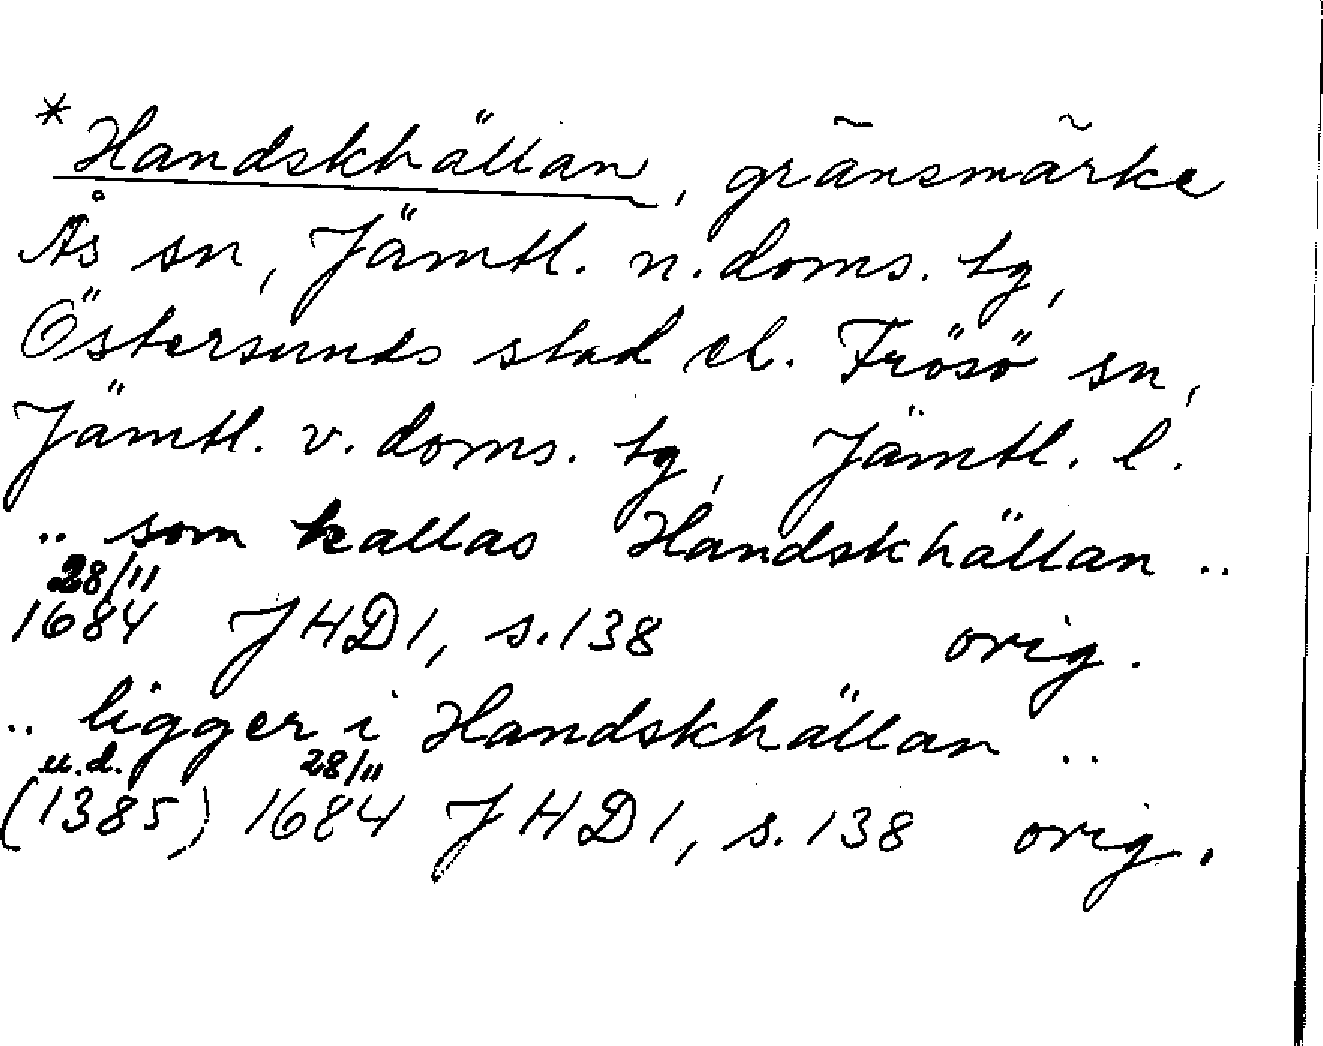 *Handskhällan, gränsmärke
Ås sn, Jämtl. n. doms. tg,
Östersunds stad el. Frösö sn,
Jämtl. v. doms. tg, Jämtl. l.
.. som kallas Handskhällan ..
28/11
1684 JHD1, s. 138 orig.
.. ligger i Handskhällan ..
u.d. 28/11
(1385) 1684 JHD1, s. 138 orig.